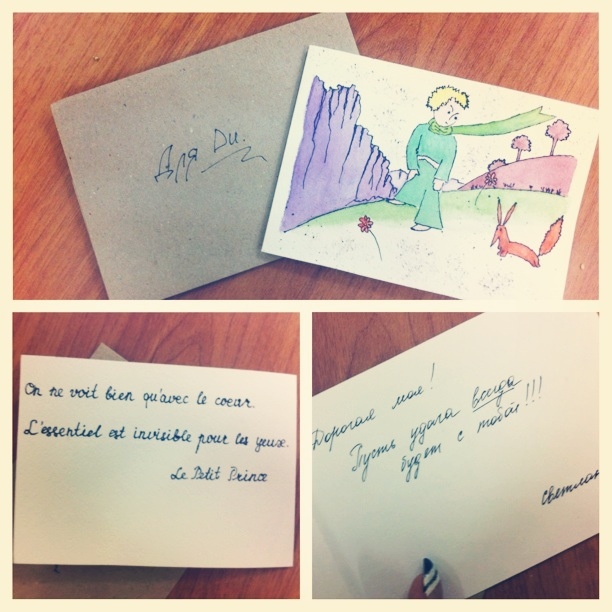 Для Ди.
On ne voit bien qu'avec le coeur.
L'essentiel est invisible pour les yeux.
Le Petit Prince
Дорогая моя!
Пусть удача всегда
будет с тобой!!!